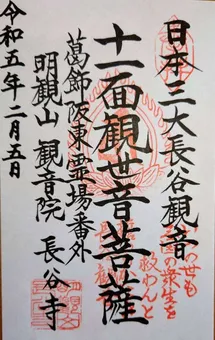 日本三大長谷観音
十一面観世音菩薩
葛飾阪東霊場番外
明観山 観音院 長谷寺
令和五年二月五日
の世も
の衆生を
救わんと